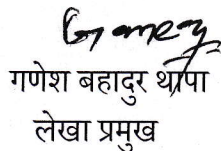 गणेश बहादुर थापा
लेखा प्रमुख